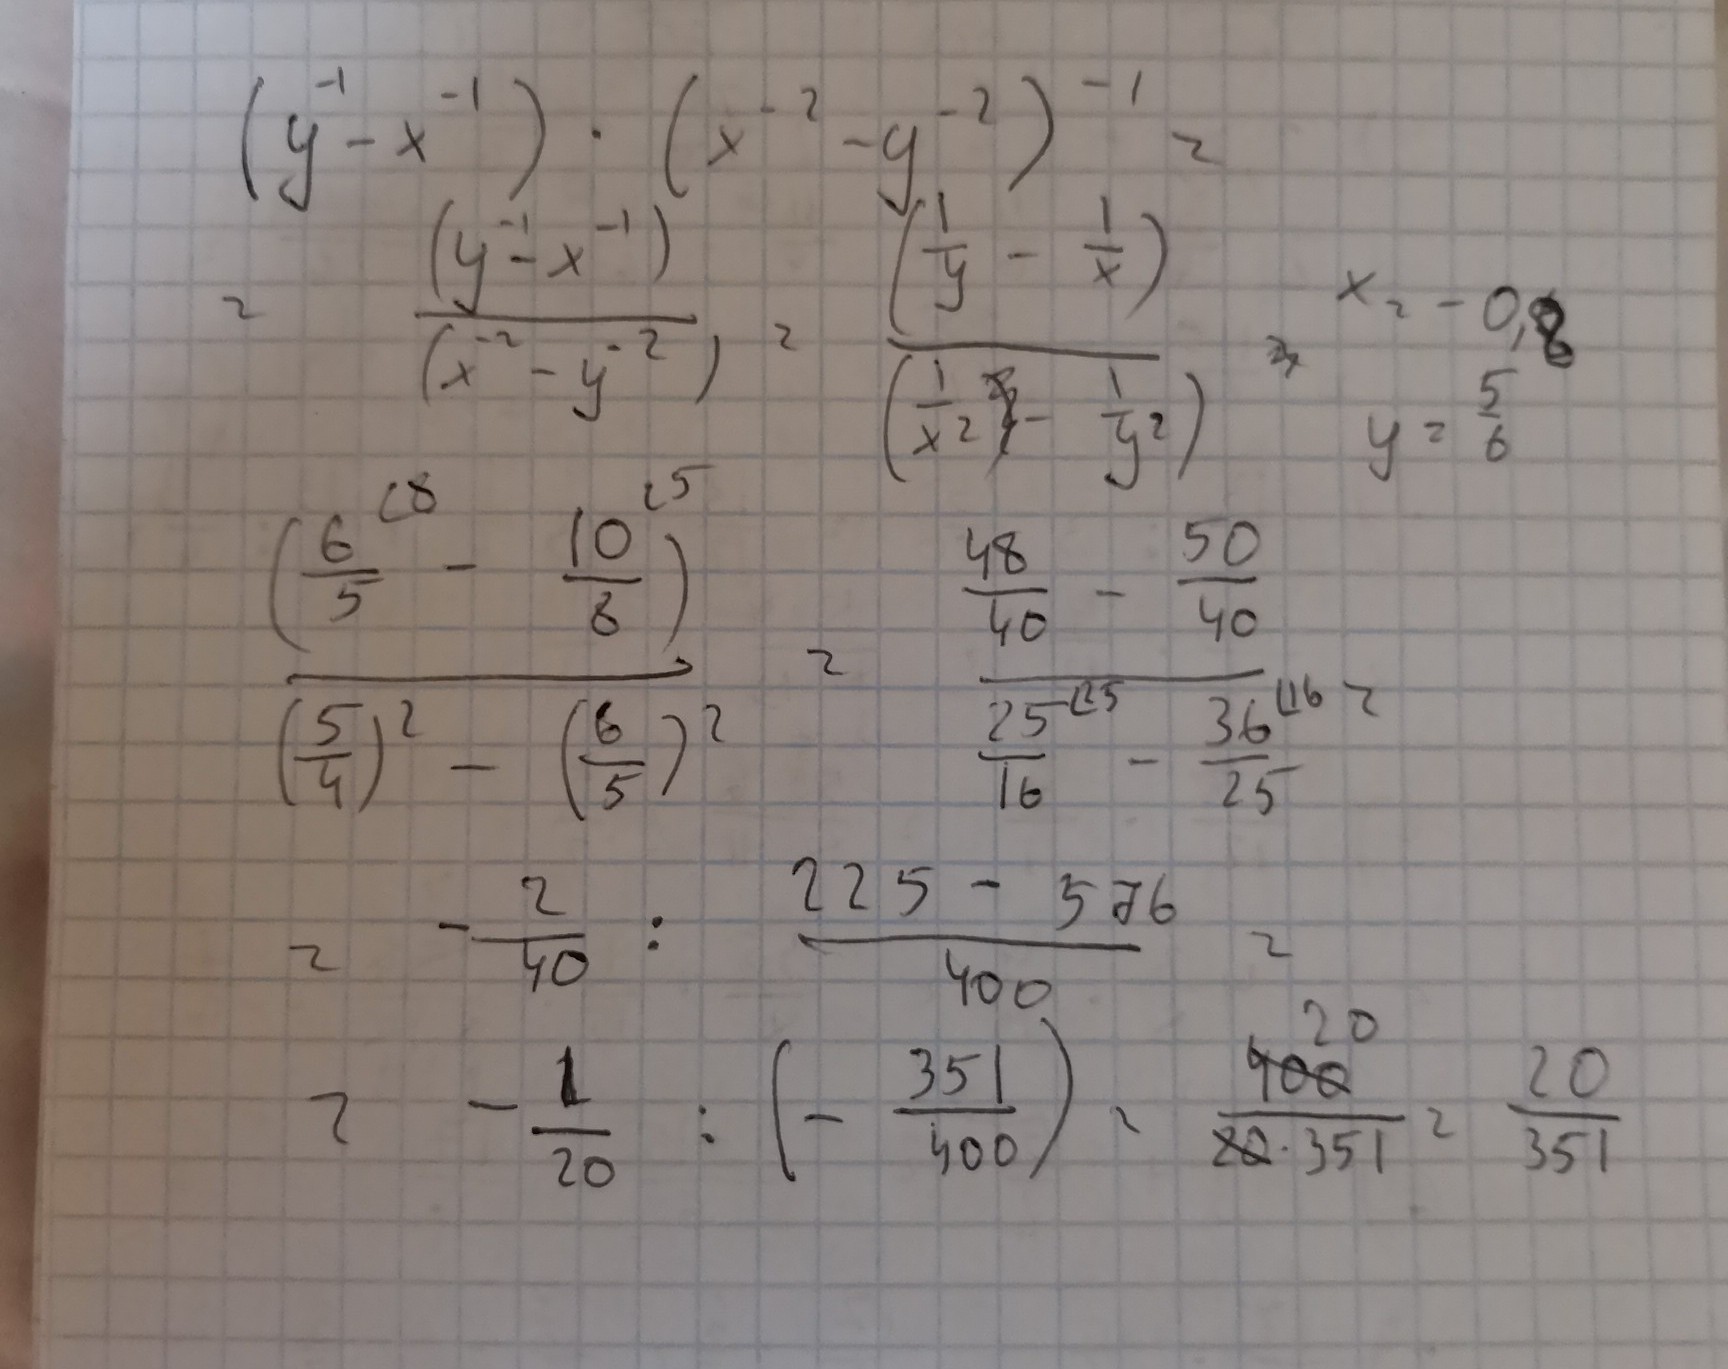 (y⁻¹ - x⁻¹) · (x⁻² - y⁻²)⁻¹ =
= (y⁻¹ - x⁻¹) / (x⁻² - y⁻²) = (1/y - 1/x) / (1/x² - 1/y²) =
x = -0,8
y = 5/6
(6/5 ⁽⁸ - 10/8 ⁽⁵) / ((5/4)² - (6/5)²) = (48/40 - 50/40) / (25/16 ⁽²⁵ - 36/25 ⁽¹⁶) =
= - 2/40 : (225 - 576)/400 =
= - 1/20 : (- 351/400) = 400 20 / (20 · 351) = 20/351